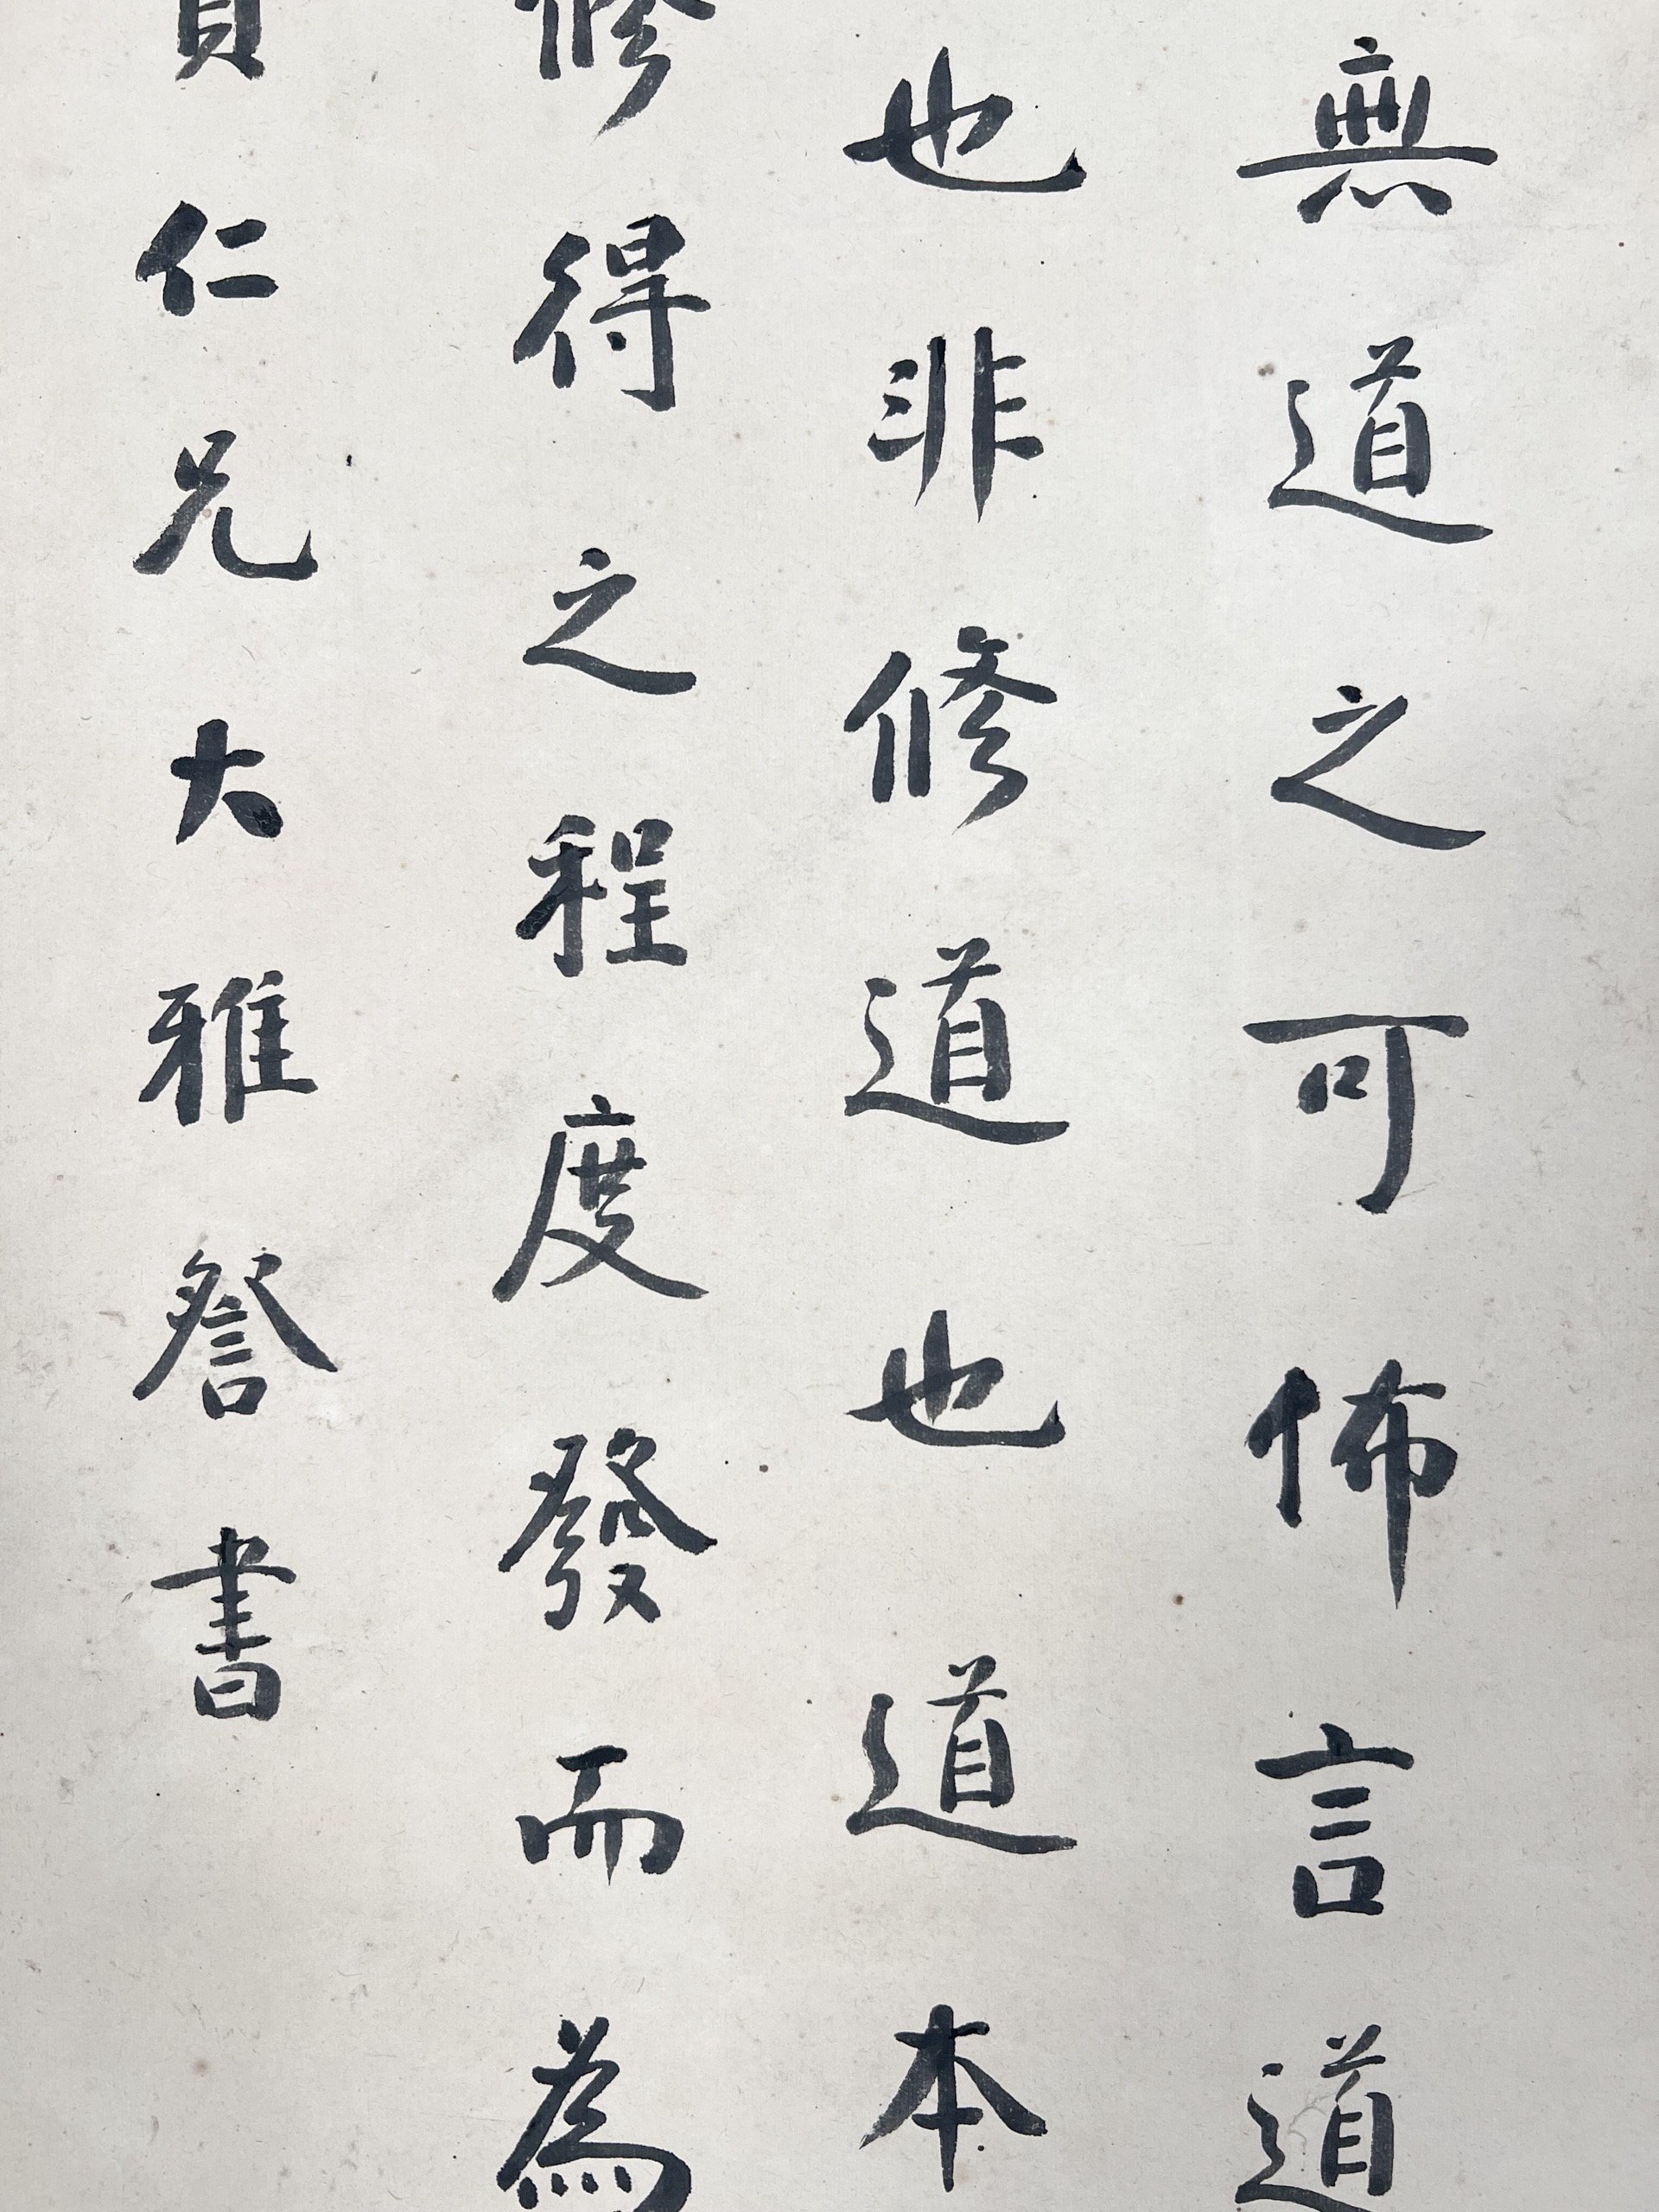 無道之可佈言道
也非修道也道本
修得之程度發而為
仁兄大雅詧書